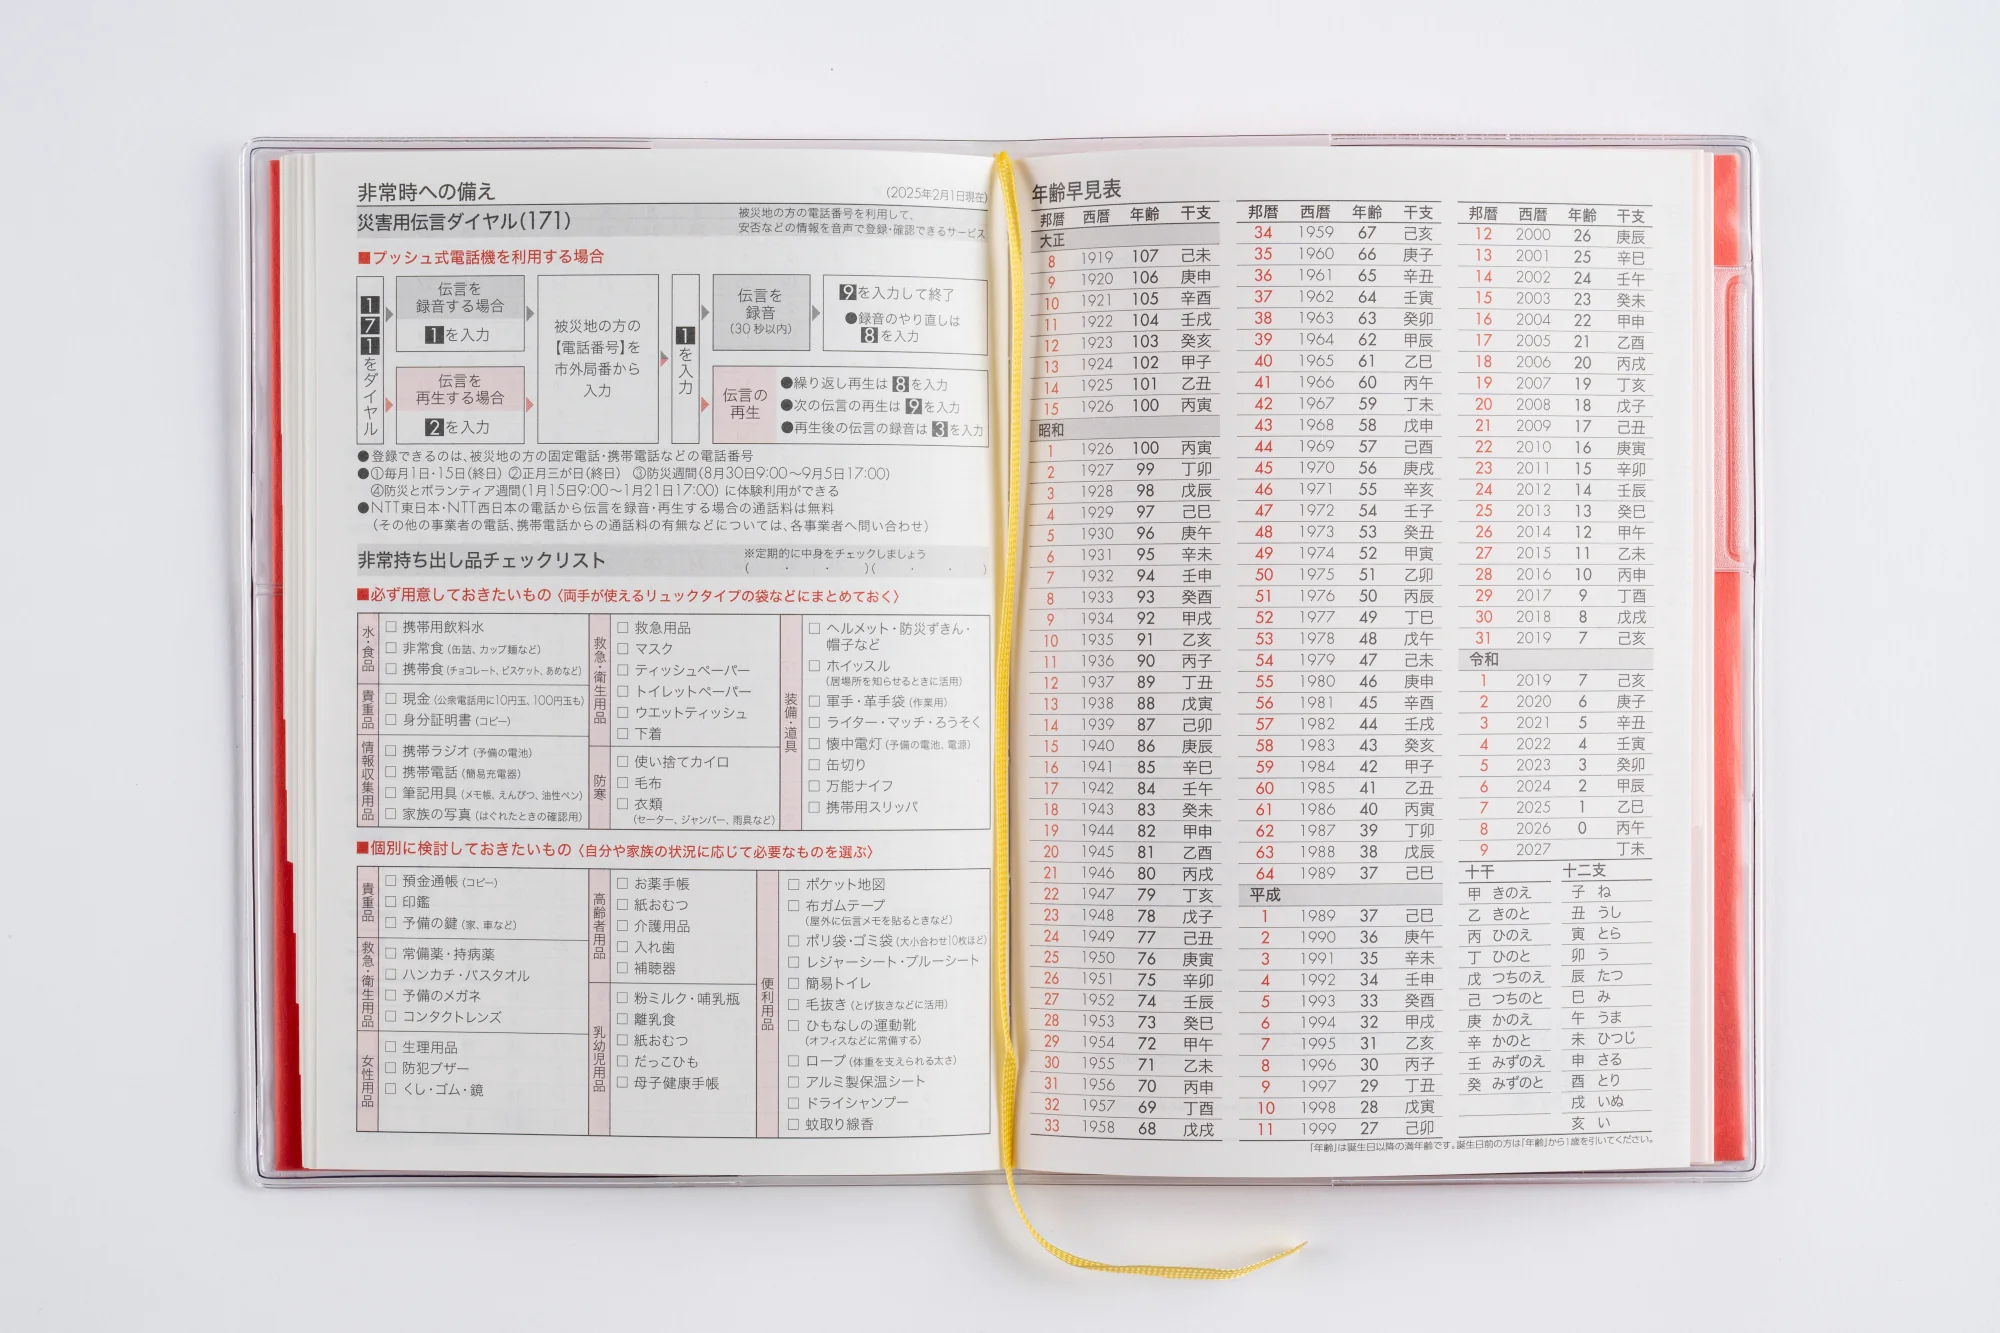 非常時への備え
(2025年2月1日現在)
災害用伝言ダイヤル(171)
被災地の方の電話番号を利用して、
安否などの情報を音声で登録・確認できるサービス
■プッシュ式電話機を利用する場合
171をダイヤル
伝言を
録音する場合
1を入力
伝言を
再生する場合
2を入力
被災地の方の
【電話番号】を
市外局番から
入力
1を入力
伝言を
録音
(30秒以内)
9を入力して終了
●録音のやり直しは
8を入力
伝言の
再生
●繰り返し再生は8を入力
●次の伝言の再生は9を入力
●再生後の伝言の録音は3を入力
●登録できるのは、被災地の方の固定電話・携帯電話などの電話番号
●①毎月1日・15日(終日) ②正月三が日(終日) ③防災週間(8月30日9:00〜9月5日17:00)
④防災とボランティア週間(1月15日9:00〜1月21日17:00) に体験利用ができる
●NTT東日本・NTT西日本の電話から伝言を録音・再生する場合の通話料は無料
(その他の事業者の電話、携帯電話からの通話料の有無などについては、各事業者へ問い合わせ)
非常持ち出し品チェックリスト
※定期的に中身をチェックしましょう
( ・ ・ )( ・ ・ )
■必ず用意しておきたいもの〈両手が使えるリュックタイプの袋などにまとめておく〉
水・食品
□ 携帯用飲料水
□ 非常食(缶詰、カップ麺など)
□ 携帯食(チョコレート、ビスケット、あめなど)
貴重品
□ 現金(公衆電話用に10円玉、100円玉も)
□ 身分証明書(コピー)
情報収集用品
□ 携帯ラジオ(予備の電池)
□ 携帯電話(簡易充電器)
□ 筆記用具(メモ帳、えんぴつ、油性ペン)
□ 家族の写真(はぐれたときの確認用)
救急・衛生用品
□ 救急用品
□ マスク
□ ティッシュペーパー
□ トイレットペーパー
□ ウエットティッシュ
□ 下着
防寒
□ 使い捨てカイロ
□ 毛布
□ 衣類
(セーター、ジャンパー、雨具など)
装備・道具
□ ヘルメット・防災ずきん・
帽子など
□ ホイッスル
(居場所を知らせるときに活用)
□ 軍手・革手袋(作業用)
□ ライター・マッチ・ろうそく
□ 懐中電灯(予備の電池、電源)
□ 缶切り
□ 万能ナイフ
□ 携帯用スリッパ
■個別に検討しておきたいもの〈自分や家族の状況に応じて必要なものを選ぶ〉
貴重品
□ 預金通帳(コピー)
□ 印鑑
□ 予備の鍵(家、車など)
救急・衛生用品
□ 常備薬・持病薬
□ ハンカチ・バスタオル
□ 予備のメガネ
□ コンタクトレンズ
女性用品
□ 生理用品
□ 防犯ブザー
□ くし・ゴム・鏡
高齢者用品
□ お薬手帳
□ 紙おむつ
□ 介護用品
□ 入れ歯
□ 補聴器
乳幼児用品
□ 粉ミルク・哺乳瓶
□ 離乳食
□ 紙おむつ
□ だっこひも
□ 母子健康手帳
便利用品
□ ポケット地図
□ 布ガムテープ
(屋外に伝言メモを貼るときなど)
□ ポリ袋・ゴミ袋(大小合わせ10枚ほど)
□ レジャーシート・ブルーシート
□ 簡易トイレ
□ 毛抜き(とげ抜きなどに活用)
□ ひもなしの運動靴
(オフィスなどに常備する)
□ ロープ(体重を支えられる太さ)
□ アルミ製保温シート
□ ドライシャンプー
□ 蚊取り線香
年齢早見表
邦暦 西暦 年齢 干支
大正
8 1919 107 己未
9 1920 106 庚申
10 1921 105 辛酉
11 1922 104 壬戌
12 1923 103 癸亥
13 1924 102 甲子
14 1925 101 乙丑
15 1926 100 丙寅
昭和
1 1926 100 丙寅
2 1927 99 丁卯
3 1928 98 戊辰
4 1929 97 己巳
5 1930 96 庚午
6 1931 95 辛未
7 1932 94 壬申
8 1933 93 癸酉
9 1934 92 甲戌
10 1935 91 乙亥
11 1936 90 丙子
12 1937 89 丁丑
13 1938 88 戊寅
14 1939 87 己卯
15 1940 86 庚辰
16 1941 85 辛巳
17 1942 84 壬午
18 1943 83 癸未
19 1944 82 甲申
20 1945 81 乙酉
21 1946 80 丙戌
22 1947 79 丁亥
23 1948 78 戊子
24 1949 77 己丑
25 1950 76 庚寅
26 1951 75 辛卯
27 1952 74 壬辰
28 1953 73 癸巳
29 1954 72 甲午
30 1955 71 乙未
31 1956 70 丙申
32 1957 69 丁酉
33 1958 68 戊戌
邦暦 西暦 年齢 干支
34 1959 67 己亥
35 1960 66 庚子
36 1961 65 辛丑
37 1962 64 壬寅
38 1963 63 癸卯
39 1964 62 甲辰
40 1965 61 乙巳
41 1966 60 丙午
42 1967 59 丁未
43 1968 58 戊申
44 1969 57 己酉
45 1970 56 庚戌
46 1971 55 辛亥
47 1972 54 壬子
48 1973 53 癸丑
49 1974 52 甲寅
50 1975 51 乙卯
51 1976 50 丙辰
52 1977 49 丁巳
53 1978 48 戊午
54 1979 47 己未
55 1980 46 庚申
56 1981 45 辛酉
57 1982 44 壬戌
58 1983 43 癸亥
59 1984 42 甲子
60 1985 41 乙丑
61 1986 40 丙寅
62 1987 39 丁卯
63 1988 38 戊辰
64 1989 37 己巳
平成
1 1989 37 己巳
2 1990 36 庚午
3 1991 35 辛未
4 1992 34 壬申
5 1993 33 癸酉
6 1994 32 甲戌
7 1995 31 乙亥
8 1996 30 丙子
9 1997 29 丁丑
10 1998 28 戊寅
11 1999 27 己卯
邦暦 西暦 年齢 干支
12 2000 26 庚辰
13 2001 25 辛巳
14 2002 24 壬午
15 2003 23 癸未
16 2004 22 甲申
17 2005 21 乙酉
18 2006 20 丙戌
19 2007 19 丁亥
20 2008 18 戊子
21 2009 17 己丑
22 2010 16 庚寅
23 2011 15 辛卯
24 2012 14 壬辰
25 2013 13 癸巳
26 2014 12 甲午
27 2015 11 乙未
28 2016 10 丙申
29 2017 9 丁酉
30 2018 8 戊戌
31 2019 7 己亥
令和
1 2019 7 己亥
2 2020 6 庚子
3 2021 5 辛丑
4 2022 4 壬寅
5 2023 3 癸卯
6 2024 2 甲辰
7 2025 1 乙巳
8 2026 0 丙午
9 2027 丁未
十干
甲 きのえ
乙 きのと
丙 ひのえ
丁 ひのと
戊 つちのえ
己 つちのと
庚 かのえ
辛 かのと
壬 みずのえ
癸 みずのと
十二支
子 ね
丑 うし
寅 とら
卯 う
辰 たつ
巳 み
午 うま
未 ひつじ
申 さる
酉 とり
戌 いぬ
亥 い
「年齢」は誕生日以降の満年齢です。誕生日前の方は「年齢」から1歳を引いてください。